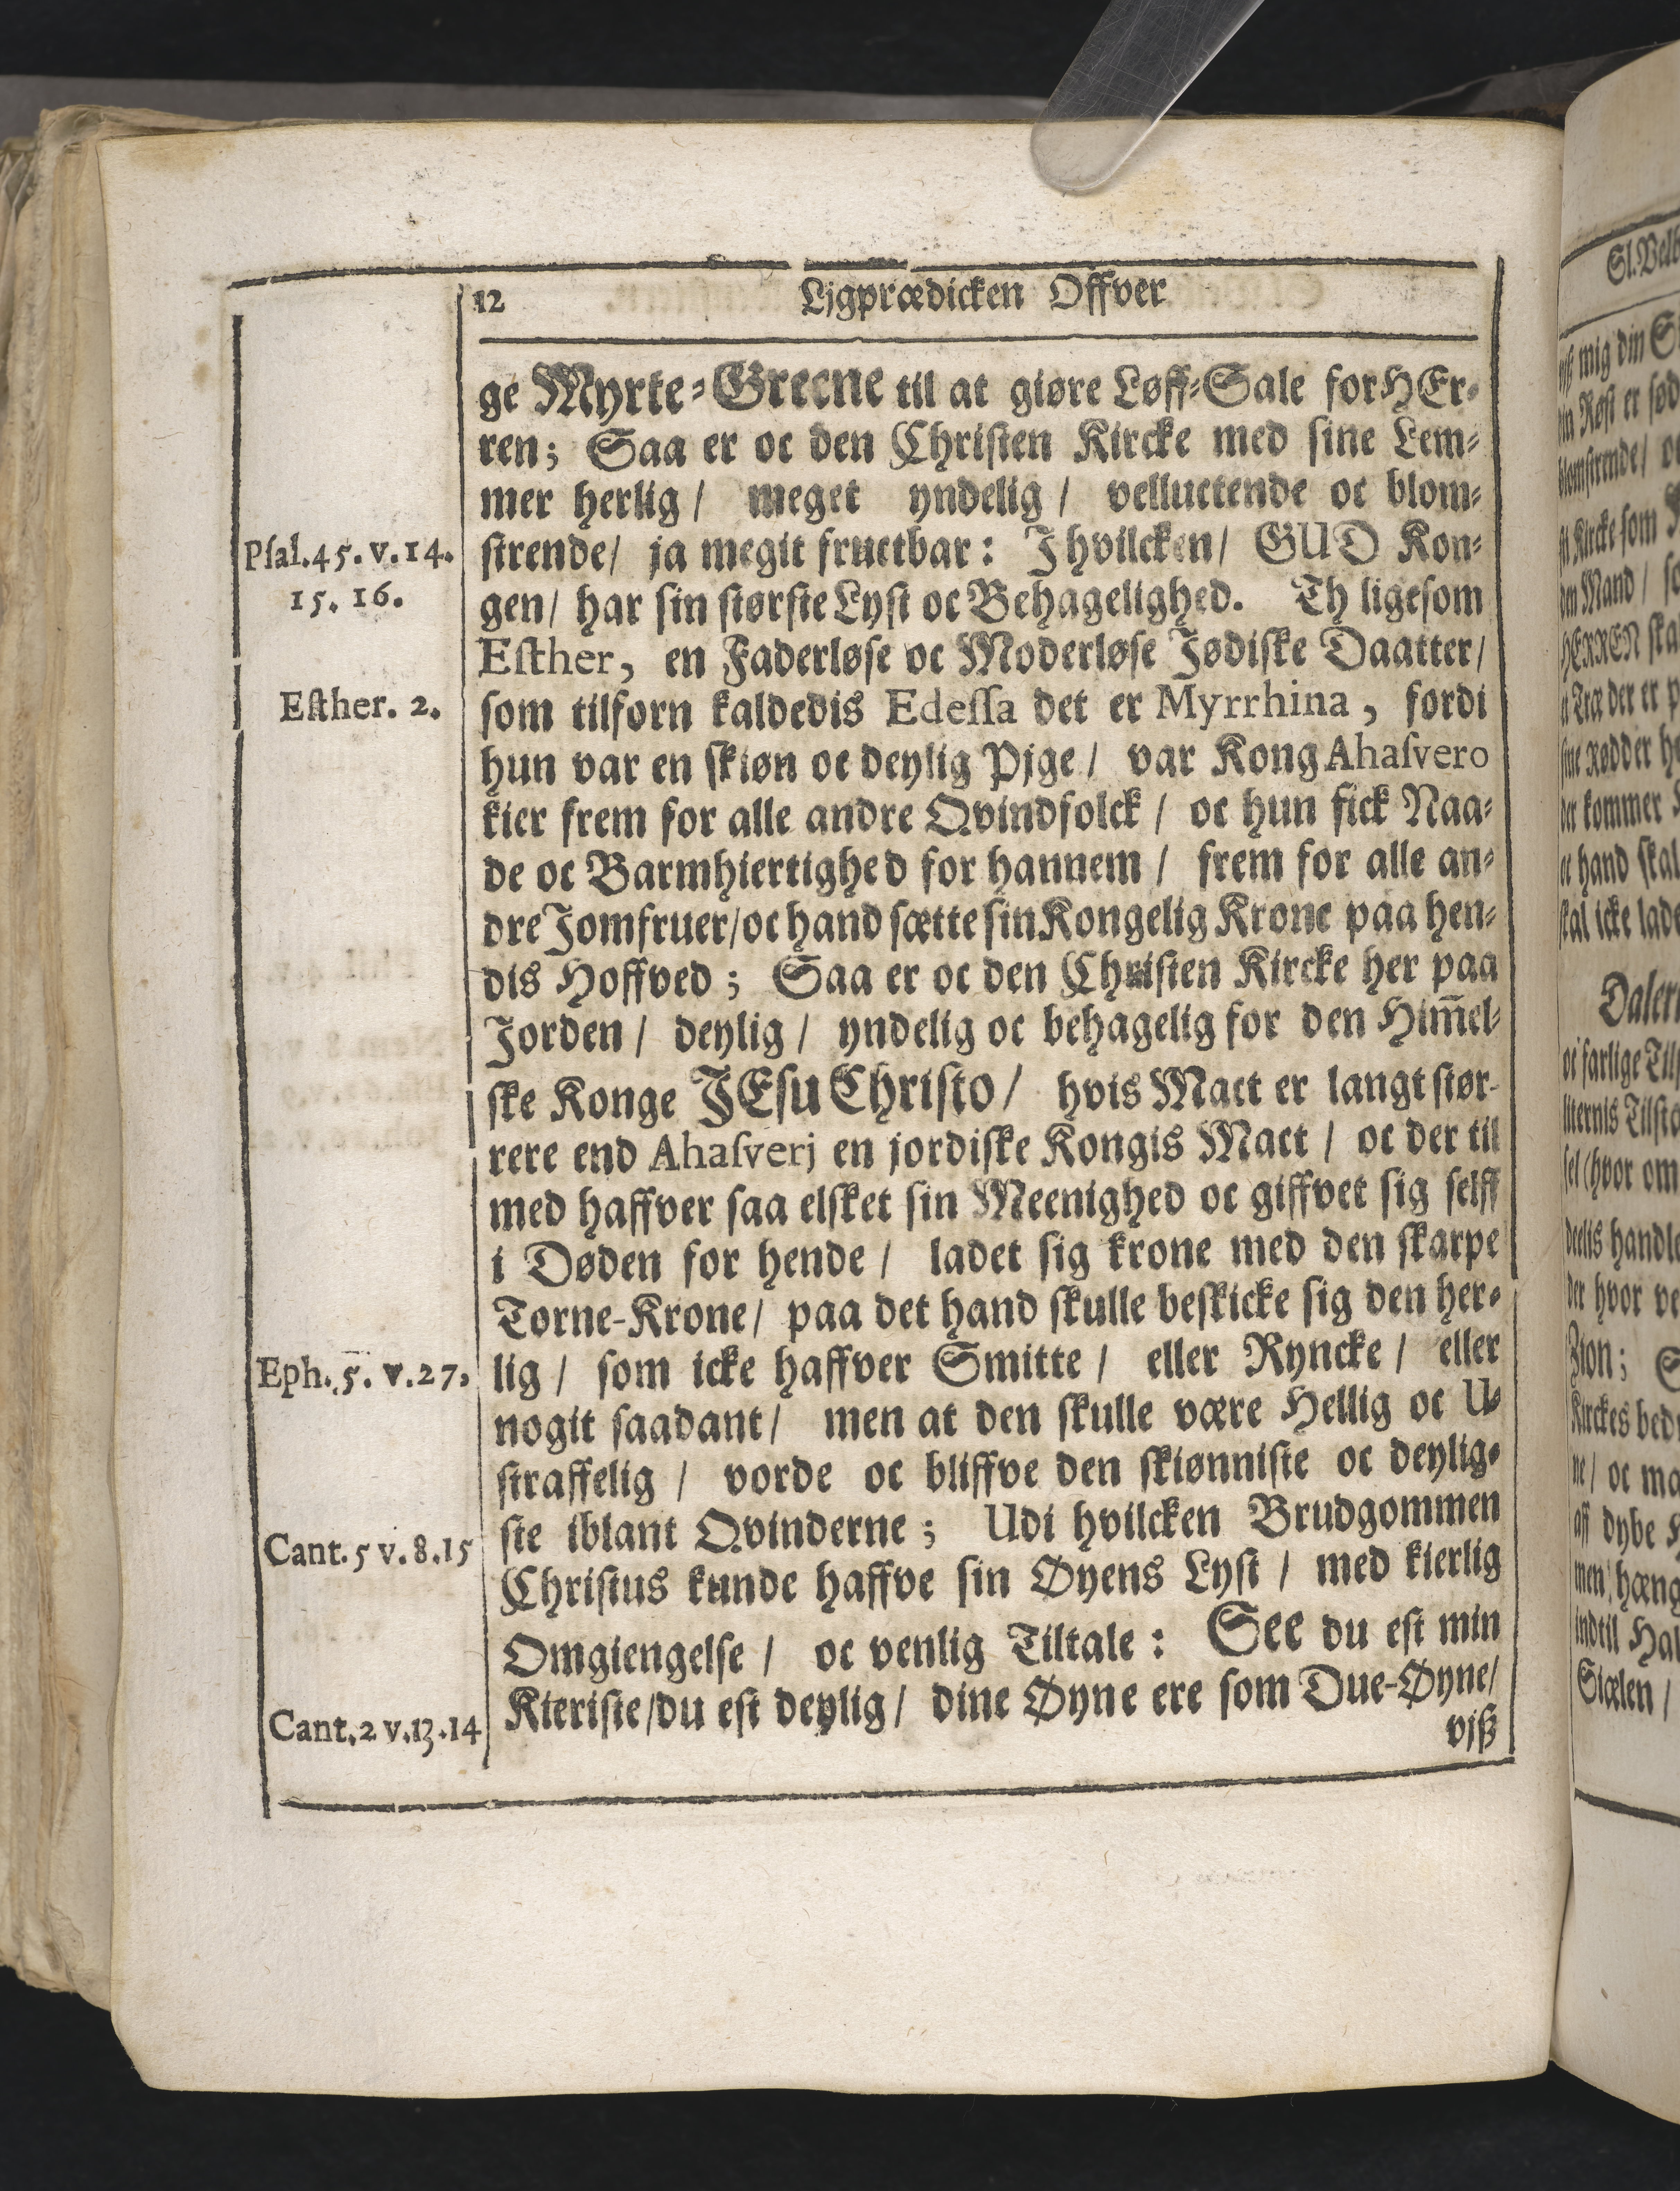 12 Ljgprædicken Offver
ge Myrte-Greene til at giøre Løff-Sale for HEr-
ren; Saa er oc den Christen Kircke med sine Lem-
mer herlig / meget yndelig / velluctende oc blom-
Psal.45. v.14. strende/ ja megit fructbar: J hvilcken/ GUD Kon-
15. 16. gen/ har sin største Lyst oc Behagelighed. Th ligesom
Esther, en Faderløse oc Moderløse Jødiske Daatter/
Esther. 2. som tilforn kaldedis Edessa det er Myrrhina, fordi
hun var en skiøn oc deylig Pjge / var Kong Ahasvero
kier frem for alle andre Qvindfolck / oc hun fick Naa-
de oc Barmhiertighed for hannem / frem for alle an-
dre Jomfruer/oc hand sætte sin Kongelig Krone paa hen-
dis Hoffved ; Saa er oc den Christen Kircke her paa
Jorden / deylig / yndelig oc behagelig for den Him̄el-
ske Konge JEsu Christo / hvis Mact er langt stør-
rere end Ahasverj en jordiske Kongis Mact / oc der til
med haffver saa elsket sin Meenighed oc giffvet sig selff
i Døden for hende / ladet sig krone med den skarpe
Torne-Krone/ paa det hand skulle beskicke sig den her-
Eph. 5. v.27, lig / som icke haffver Smitte / eller Ryncke / eller
nogit saadant/ men at den skulle være Hellig oc U-
straffelig / vorde oc bliffve den skiønniste oc deylig-
Cant. 5 v. 8.15 ste iblant Qvinderne ; Udi hvilcken Brudgommen
Christus kunde haffve sin Øyens Lyst / med kierlig
Omgiengelse / oc venlig Tiltale : See du est min
Cant. 2 v.13.14 Kieriste/du est deylig/ dine Øyne ere som Due-Øyne/
vjß